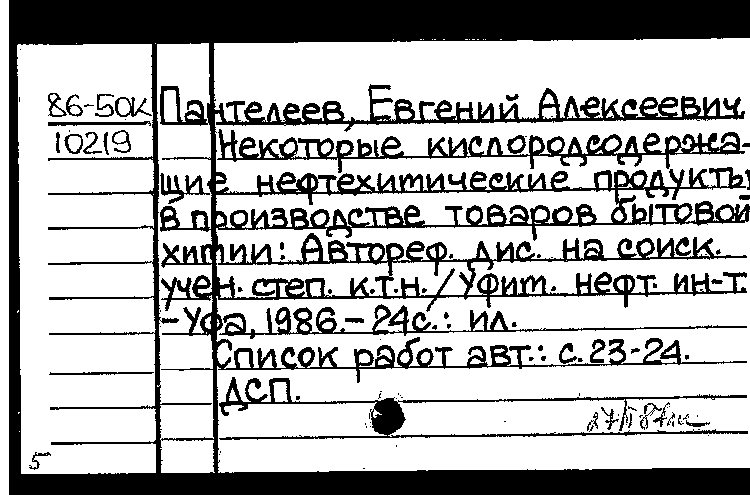 86-50К Пантелеев, Евгений Алексеевич.
10219 Некоторые кислородсодержа-
щие нефтехитические продукты
в производстве товаров бытовой
хитии: Автореф. дис. на соиск.
учен. степ. к.т.н. / Уфит. нефт. ин-т.
-Уфа, 1986. - 24с.: ил.
Список работ авт.: с. 23-24.
ДСП.
5